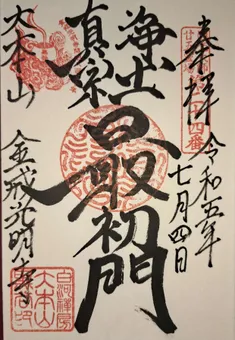 奉拝
令和五年
七月四日
浄土
真宗
最初門
大本山
金戒光明寺
白河禅房
大本山